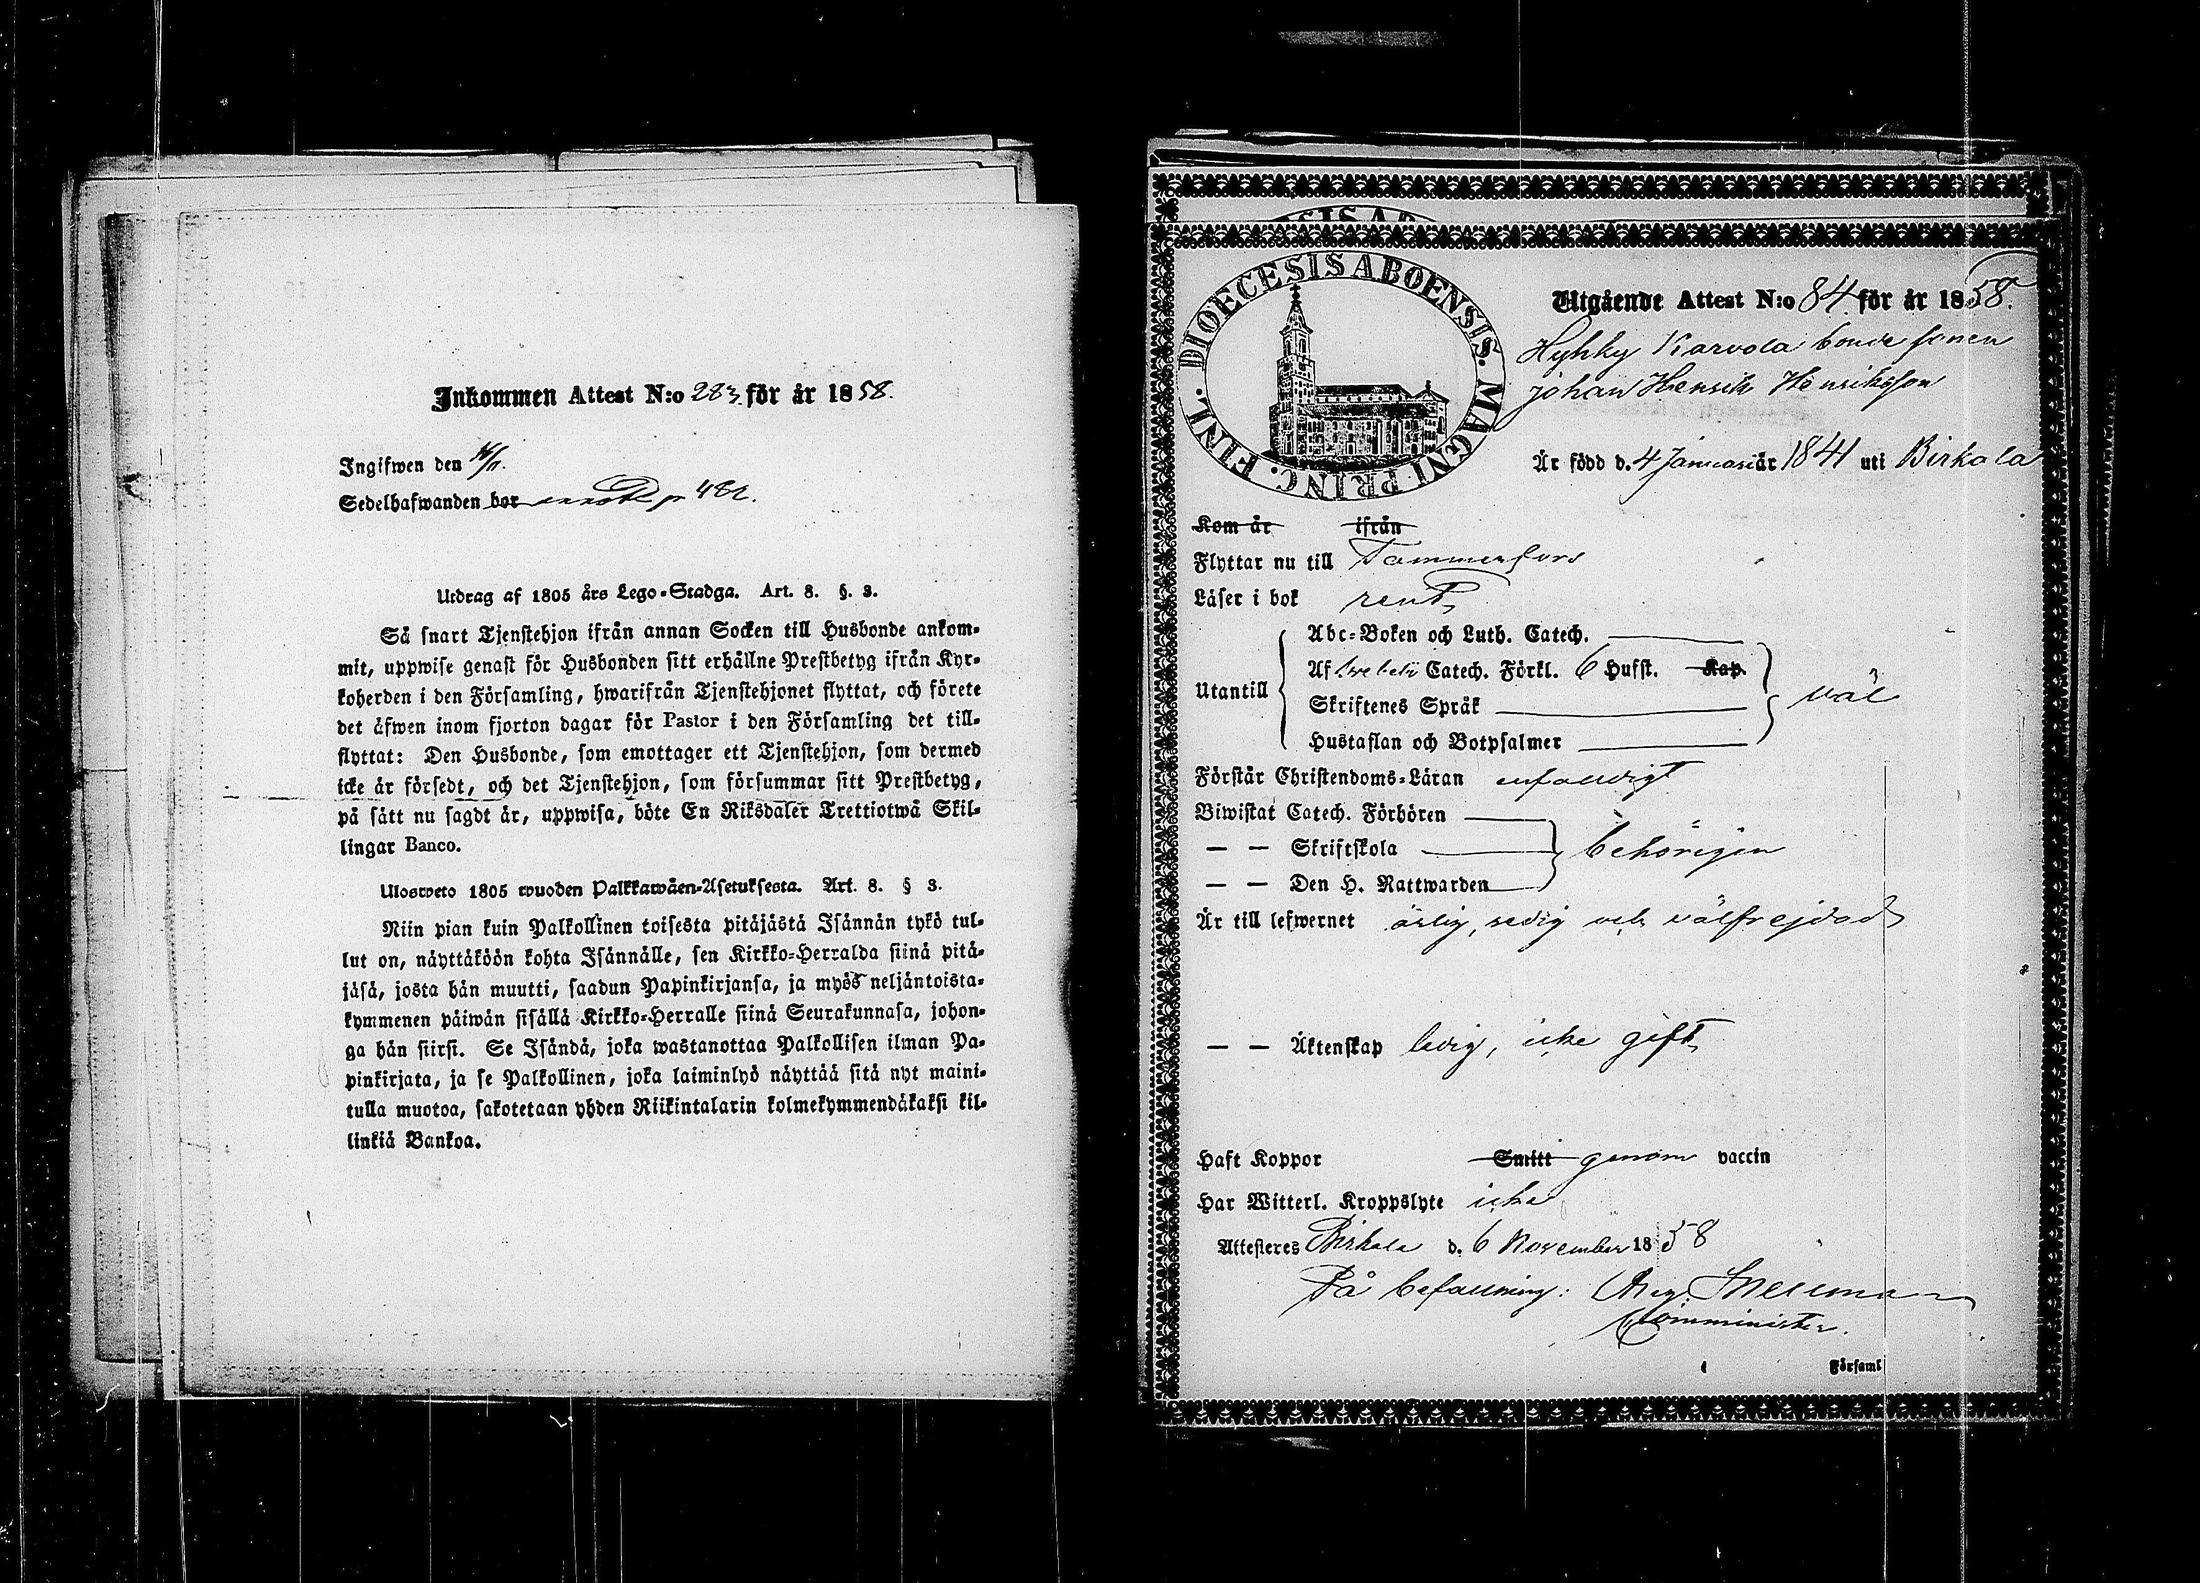 Inkommen Attest N:o 283 för år 1858.
Ingifwen den 16/11.
Sedelhafwanden bor p 482.
Utdrag af 1805 års Lego-Stadga. Art. 8. §. 3.
Så snart Tjenstehjon ifrån annan Socken till Husbonde ankom-
mit, uppwise genast för Husbonden sitt erhållne Prestbetyg ifrån Kyr-
koherden i den Församling, hwarifrån Tjenstehjonet flyttat, och förete
det äfwen inom fjorton dagar för Pastor i den Församling det till-
flyttat: Den Husbonde, som emottager ett Tjenstehjon, som dermed
icke är försedt, och det Tjenstehjon, som försummar sitt Prestbetyg,
på sätt nu sagdt är, uppwisa, böte En Riksdaler Trettiotwå Skil-
lingar Banco.
Ulosweto 1805 wuoden Palkkawäen-Asetuksesta. Art. 8. § 3.
Niin pian kuin Palkollinen toisesta pitäjästä Isännän tykö tul-
lut on, näyttäköön kohta Isännälle, sen Kirkko-Herralda siinä pitä-
jäsä, josta hän muutti, saadun Papinkirjansa, ja myös neljäntoista-
kymmenen päiwän sisällä Kirkko-Herralle siinä Seurakunnasa, johon-
ga hän siirsi. Se Isändä, joka wastanottaa Palkollisen ilman Pa-
pinkirjata, ja se Palkollinen, joka laiminlyö näyttää sitä nyt maini-
tulla muotoa, sakotetaan yhden Riikintalarin kolmekymmendäkaksi kil-
linkiä Bankoa.
DIOECESIS ABOENSIS. MAGNI PRINC. FINL.
Utgående Attest N:o 84 för år 1858.
Hyhky Karvola bonde sonen
Johan Henrik Henriksson
Är född d. 4 Januari år 1841 uti Birkala
Kom år ifrån
Flyttar nu till Tammerfors
Läser i bok rent
Abc-Boken och Luth. Catech.
Utantill
Af Svebelii Catech. Förkl. 6 Hufst. Kap.
Skriftenes Språk
väl
Hustaflan och Botpsalmer
Förstår Christendoms-Läran enfaldigt
Biwistat Catech. Förhören
— — Skriftskola
behörigen
— — Den H. Nattwarden
Är till lefwernet ärlig, redig och välfrejdad
— — Äktenskap ledig, icke gift
Haft Koppor Smitt genom vaccin
Har Witterl. Kroppslyte icke
Attesteres Birkala d. 6 November 1858
På befallning: Aug. Snellman
Comminister.
Församl